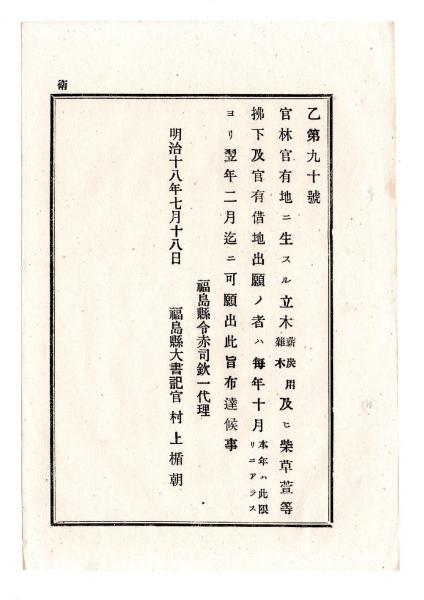 衛
乙第九十號
官林官有地ニ生スル立木薪炭用雜木及ヒ柴草萱等
拂下及官有借地出願ノ者ハ每年十月本年ハ此限リニアラス
ヨリ翌年二月迄ニ可願出此旨布達候事
福島縣令赤司欽一代理
明治十八年七月十八日 福島縣大書記官 村上楯朝